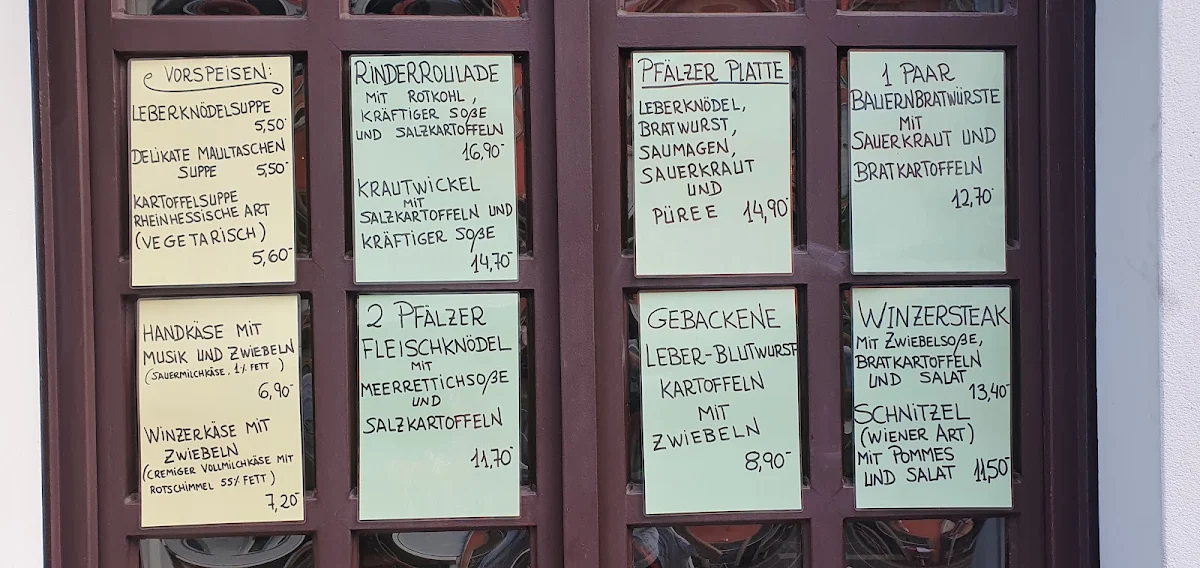 VORSPEISEN:
LEBERKNÖDELSUPPE
5,50-
DELIKATE MAULTASCHEN
SUPPE 5,50-
KARTOFFELSUPPE
RHEINHESSISCHE ART
(VEGETARISCH)
5,60-
RINDERROULADE
MIT ROTKOHL,
KRÄFTIGER SOßE
UND SALZKARTOFFELN
16,90-
KRAUTWICKEL
MIT
SALZKARTOFFELN UND
KRÄFTIGER SOßE
14,70-
PFÄLZER PLATTE
LEBERKNÖDEL,
BRATWURST,
SAUMAGEN,
SAUERKRAUT
UND
PÜREE 14,90-
1 PAAR
BAUERNBRATWÜRSTE
MIT
SAUERKRAUT UND
BRATKARTOFFELN
12,70-
HANDKÄSE MIT
MUSIK UND ZWIEBELN
(SAUERMILCHKÄSE. 1% FETT)
6,90-
WINZERKÄSE MIT
ZWIEBELN
(CREMIGER VOLLMILCHKÄSE MIT
ROTSCHIMMEL 55% FETT)
7,20-
2 PFÄLZER
FLEISCHKNÖDEL
MIT
MEERRETTICHSOßE
UND
SALZKARTOFFELN
11,70-
GEBACKENE
LEBER-BLUTWURST
KARTOFFELN
MIT
ZWIEBELN
8,90-
WINZERSTEAK
MIT ZWIEBELSOßE,
BRATKARTOFFELN
UND SALAT
13,40-
SCHNITZEL
(WIENER ART)
MIT POMMES
UND SALAT 11,50-